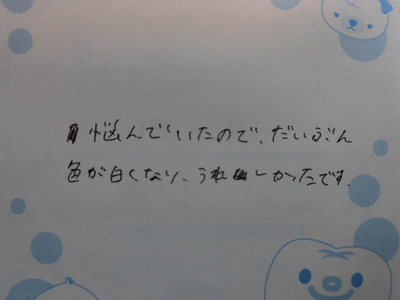 悩んでいたので、だいぶん
色が白くなり、うれしかったです.